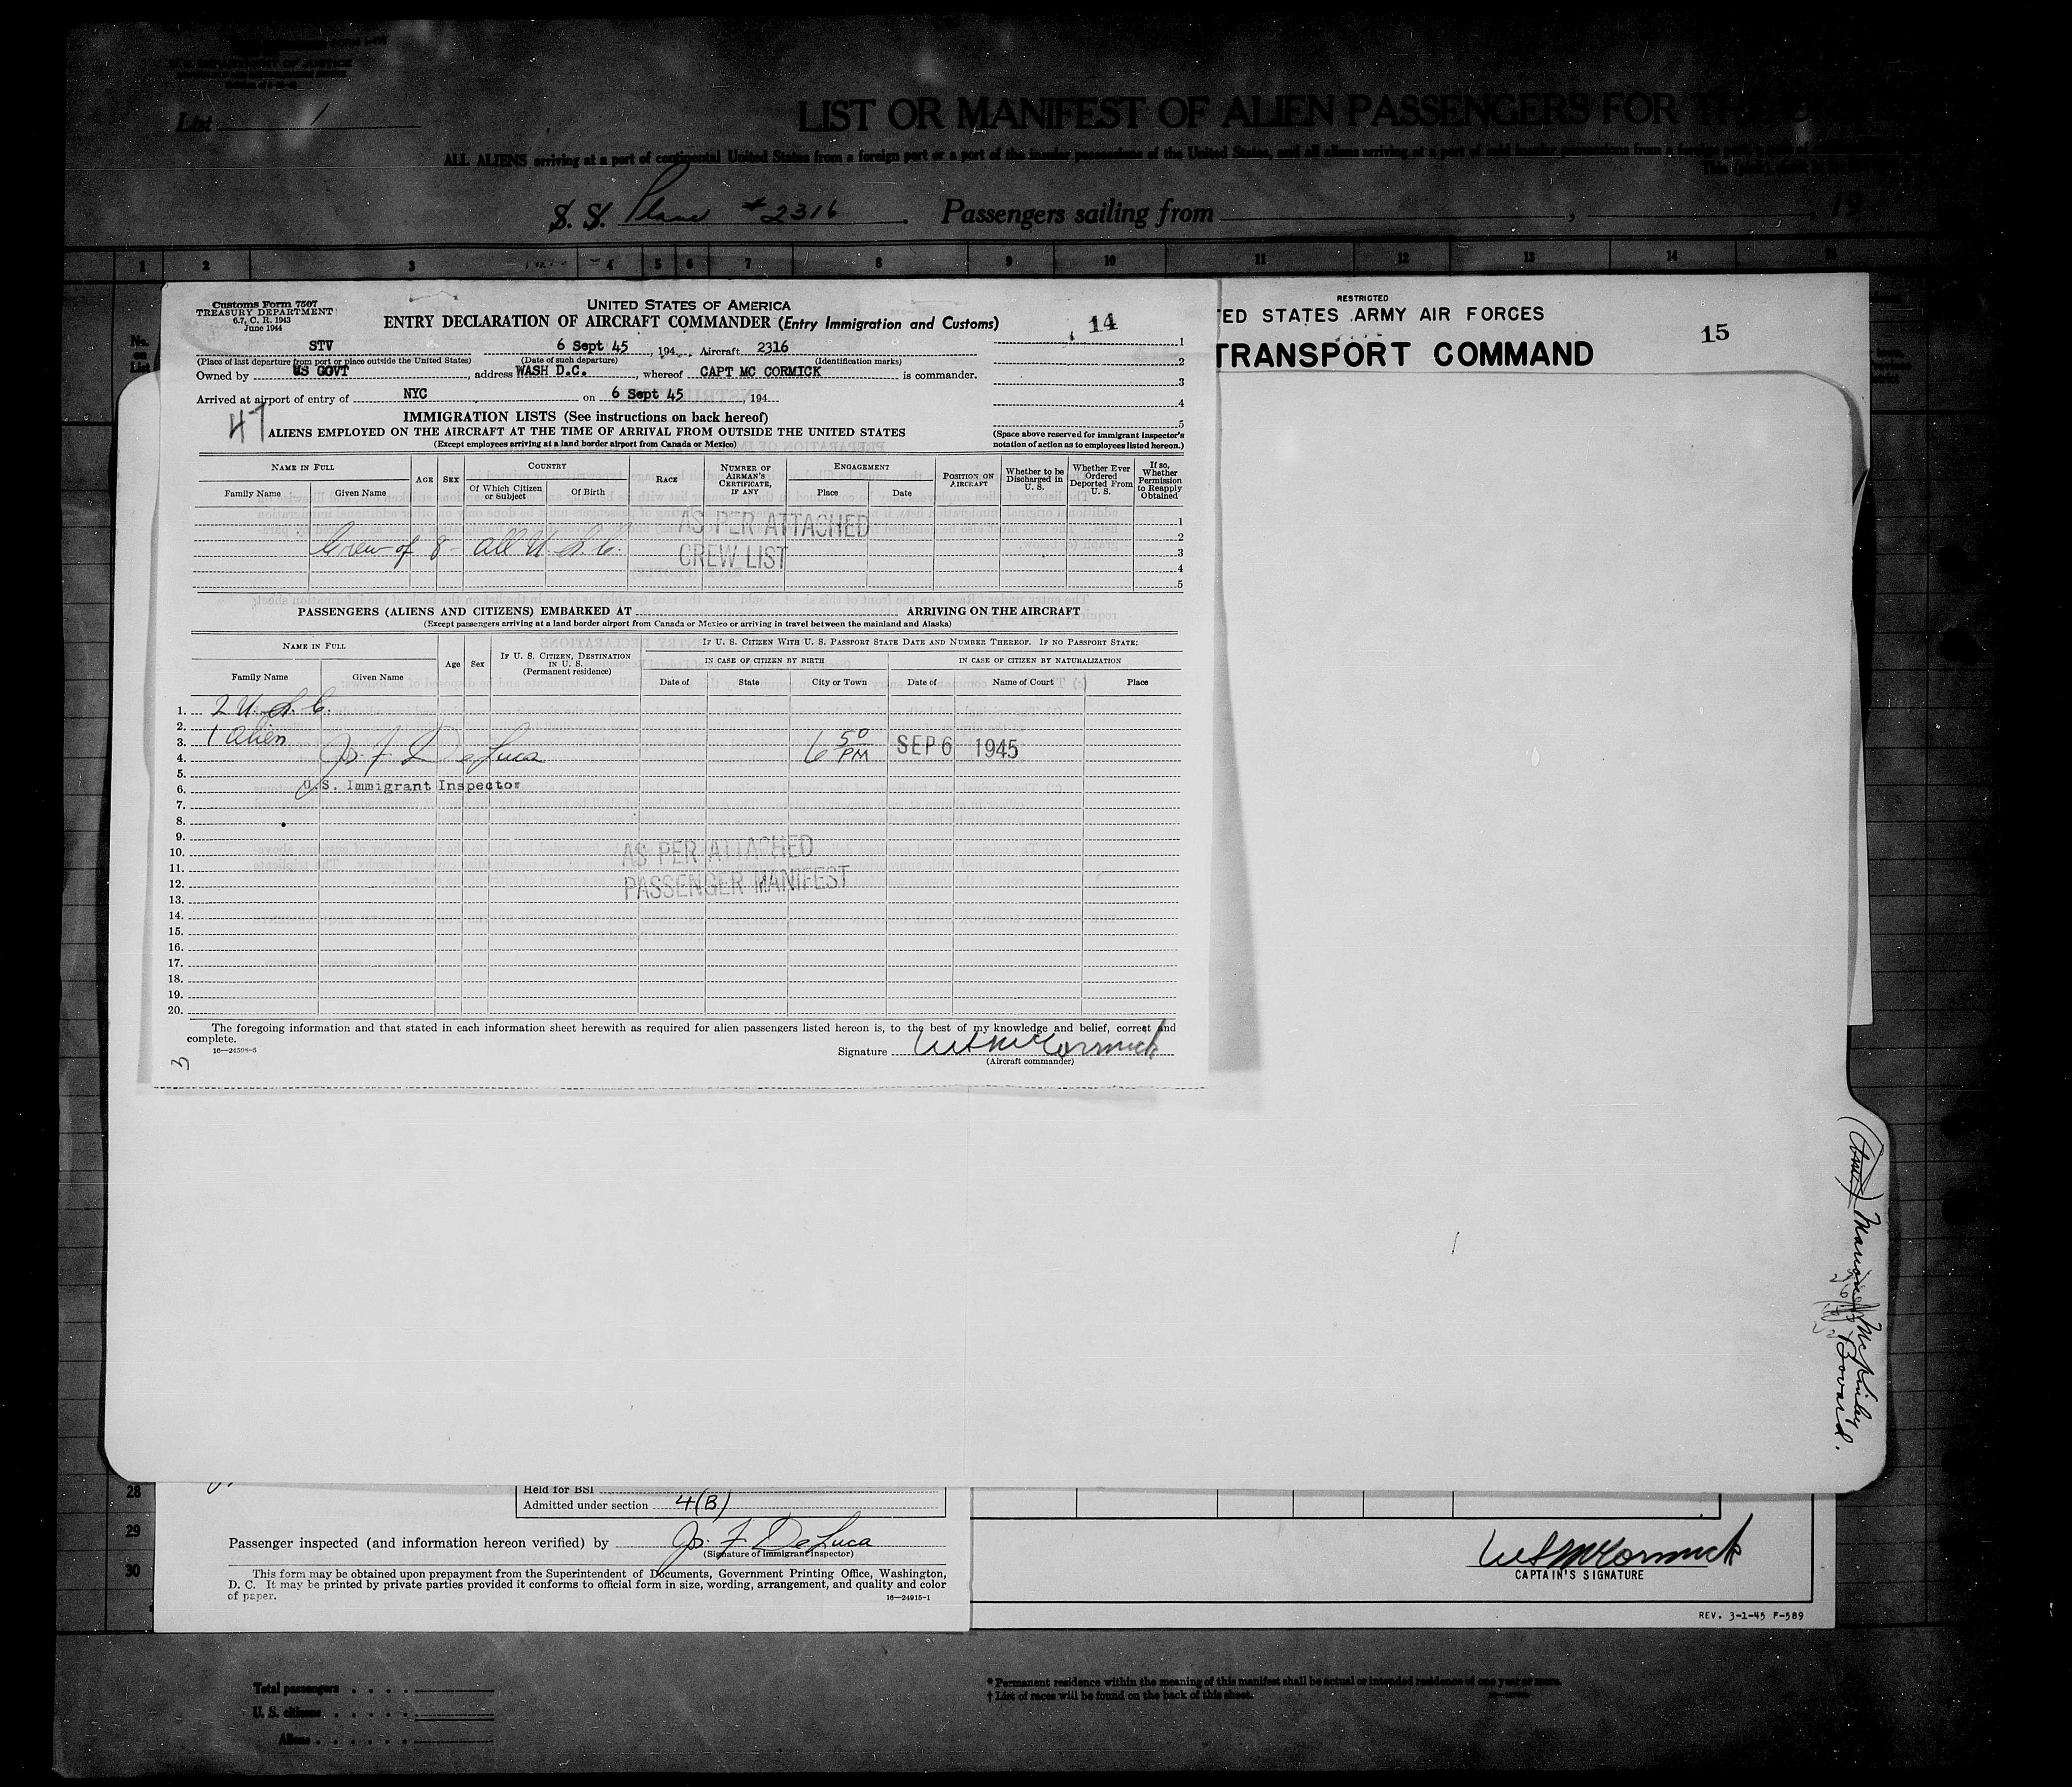 U. S. DEPARTMENT OF JUSTICE
List 1
LIST OR MANIFEST OF ALIEN PASSENGERS FOR THE
ALL ALIENS arriving at a port of continental United States from a foreign port or a port of the insular possessions of the United States, and all aliens arriving at a port of said insular possessions from a foreign port
S. S. Plane #2316 Passengers sailing from , 19
1 2 3 4 5 6 7 8 9 10 11 12 13 14 15
No. on List
Customs Form 7507
TREASURY DEPARTMENT
6.7, C. R. 1943
June 1944
UNITED STATES OF AMERICA
ENTRY DECLARATION OF AIRCRAFT COMMANDER (Entry Immigration and Customs)
14
STV 6 Sept 45, 194 Aircraft 2316
(Place of last departure from port or place outside the United States) (Date of such departure) (Identification marks)
Owned by US GOVT, address WASH D.C., whereof CAPT MC CORMICK is commander.
Arrived at airport of entry of NYC on 6 Sept 45, 194
1
2
3
4
5
47
IMMIGRATION LISTS (See instructions on back hereof)
ALIENS EMPLOYED ON THE AIRCRAFT AT THE TIME OF ARRIVAL FROM OUTSIDE THE UNITED STATES
(Except employees arriving at a land border airport from Canada or Mexico)
(Space above reserved for immigrant inspector's notation of action as to employees listed hereon.)
NAME IN FULL
Family Name Given Name
AGE SEX
COUNTRY
Of Which Citizen or Subject Of Birth
RACE
NUMBER OF AIRMAN'S CERTIFICATE, IF ANY
ENGAGEMENT
Place Date
POSITION ON AIRCRAFT
Whether to be Discharged in U. S.
Whether Ever Ordered Deported From U. S.
If so, Whether Permission to Reapply Obtained
AS PER ATTACHED
CREW LIST
Crew of 8 - all U. S. C.
1
2
3
4
5
PASSENGERS (ALIENS AND CITIZENS) EMBARKED AT ARRIVING ON THE AIRCRAFT
(Except passengers arriving at a land border airport from Canada or Mexico or arriving in travel between the mainland and Alaska)
NAME IN FULL
Family Name Given Name
Age Sex
IF U. S. CITIZEN, DESTINATION IN U. S.
(Permanent residence)
IF U. S. CITIZEN WITH U. S. PASSPORT STATE DATE AND NUMBER THEREOF. IF NO PASSPORT STATE:
IN CASE OF CITIZEN BY BIRTH IN CASE OF CITIZEN BY NATURALIZATION
Date of State City or Town Date of Name of Court Place
1. 2 U. S. C.
2.
3. 1 alien
4. Jos. F. DeLuca 6 50 PM SEP 6 1945
5.
6. U.S. Immigrant Inspector
7.
8.
9.
10. AS PER ATTACHED
11.
12. PASSENGER MANIFEST
13.
14.
15.
16.
17.
18.
19.
20.
The foregoing information and that stated in each information sheet herewith as required for alien passengers listed hereon is, to the best of my knowledge and belief, correct and
complete.
16—24598-5
Signature W S McCormick
(Aircraft commander)
3
RESTRICTED
TED STATES ARMY AIR FORCES
TRANSPORT COMMAND
15
Marion McKinley Bovard.
28
29
30
Held for BSI
Admitted under section 4(B)
Passenger inspected (and information hereon verified) by Jos. F. DeLuca
(Signature of Immigrant Inspector)
This form may be obtained upon prepayment from the Superintendent of Documents, Government Printing Office, Washington,
D. C. It may be printed by private parties provided it conforms to official form in size, wording, arrangement, and quality and color
of paper.
16—24915-1
W S McCormick
CAPTAIN'S SIGNATURE
REV. 3-1-45 F-589
Total passengers
U. S. citizens
Aliens
* Permanent residence within the meaning of this manifest shall be actual or intended residence of one year or more.
† List of races will be found on the back of this sheet.